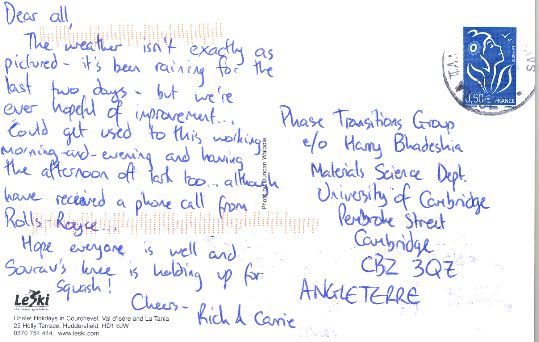 Dear all,
The weather isn't exactly as
pictured - it's been raining for the
last two days - but we're
ever hopeful of improvement...
Could get used to this working
morning-and-evening and having
the afternoon off lark too... although
have received a phone call from
Rolls-Royce...
Hope everyone is well and
Sourav's knee is holding up for
squash!
Cheers -
Rich & Carrie
LeSki
Chalet Holidays in Courchevel, Val d'Isère and La Tania
25 Holly Terrace, Huddersfield, HD1 6JW
0870 754 444 www.leski.com
0,60€
FRANCE
Phase Transitions Group
c/o Harry Bhadeshia
Materials Science Dept.
University of Cambridge
Pembroke Street
Cambridge
CB2 3QZ
ANGLETERRE